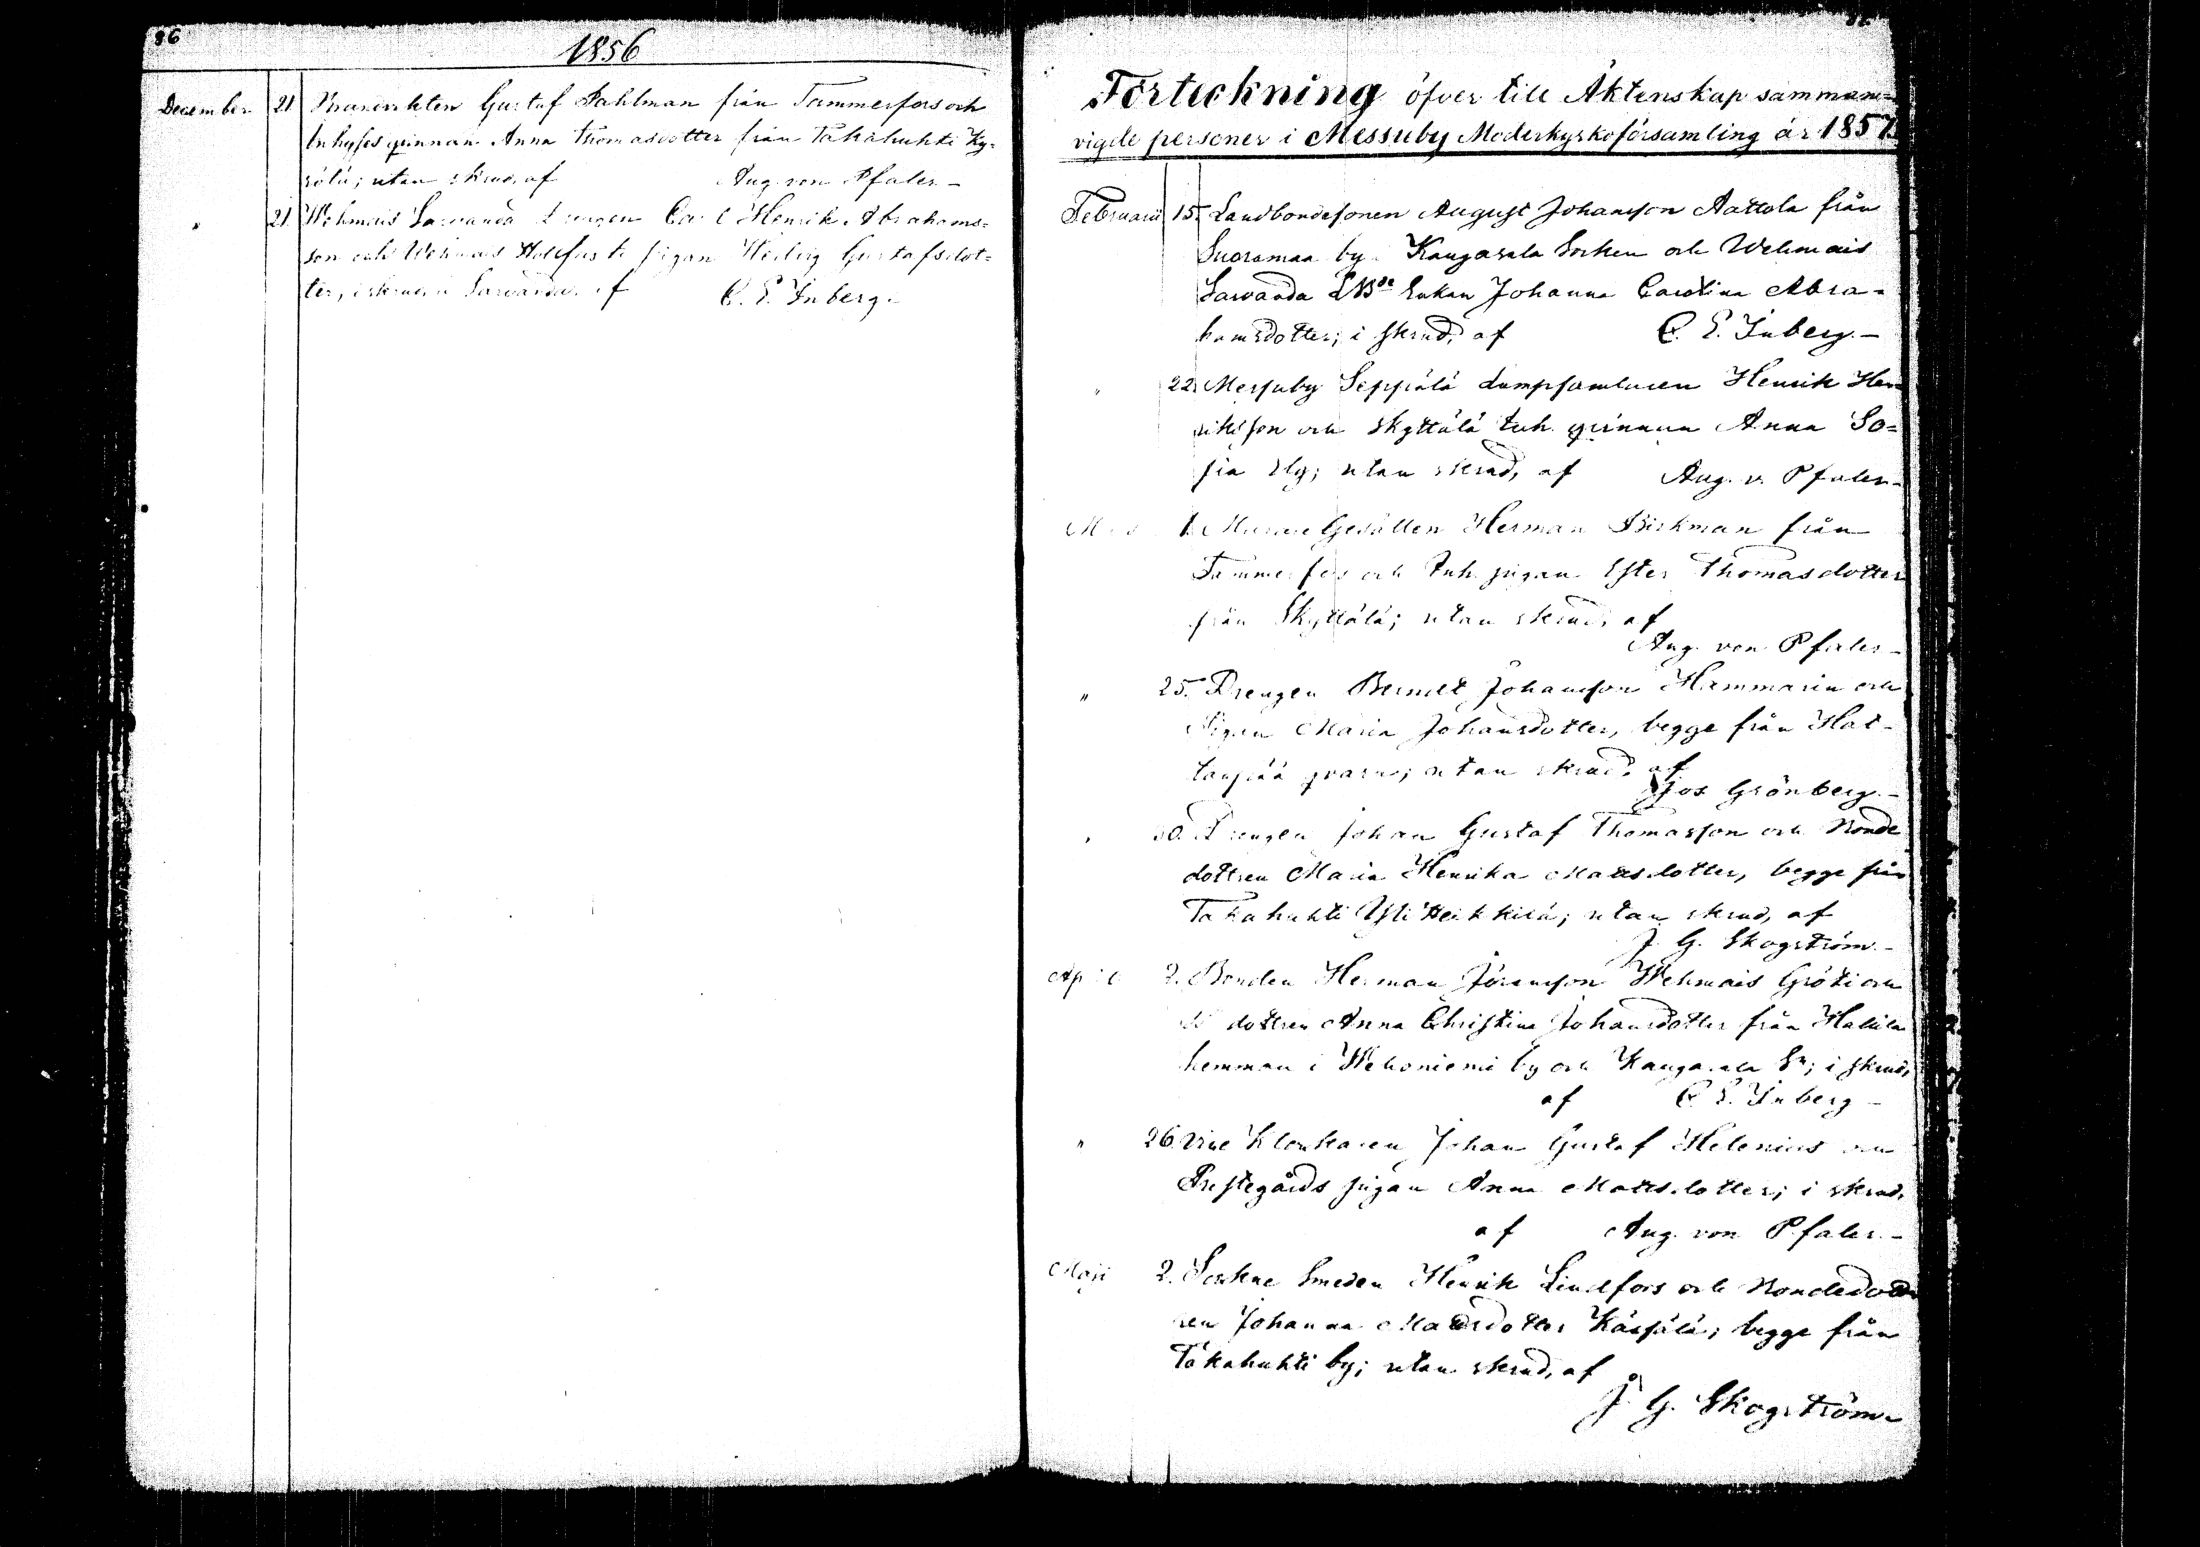 86
1856
December 21 Brandvakten Gustaf Dahlman från Tammerfors och
Inhyses qvinnan Anna Thomasdotter från Takahuhti Ky=
rölä; utan skrud, af Aug. von Pfaler -
" 21. Wehmais Sarvanda Drengen Carl Henrik Abrahams=
son och Wehmais Heidig Gustafsdot=
ter, i skrud, i Sarvanda af C. E. Inberg.
Förteckning öfver till Äktenskap samman=
vigde personer i Messuby Moderkyrkoförsamling år 1857.
Februarii 15. Landbondesonen August Johansson Aattola från
Suoramaa by i Kangasala Socken och Wehmais
Sarvanda LBde Enkan Johanna Carolina Abra=
hamsdotter; i skrud, af C. E. Inberg. -
" 22. Messuby Seppälä Lumpsamlaren Henrik Hen=
riksson och Skyttälä Inh. qvinnan Anna So=
fia Elg; utan skrud, af Aug. v. Pfaler. -
Mars 1. Murare Gesällen Herman Birkman från
Tammerfors och Inh. pigan Ester Thomasdotter
från Skyttälä; utan skrud, af
Aug. von Pfaler -
" 25. Drengen Berndt Johansson Hammarin och
Pigan Maria Johansdotter, begge från Hat=
tanpää qvarn; utan skrud, af
Jos Grönberg. -
" 30. Drengen Johan Gustaf Thomasson och Bonde
dottren Maria Henrika Mattsdotter, begge från
Takahuhti Yli Heikkilä; utan skrud, af
J. G. Skogström. -
April 2. Bonden Herman Jöransson Wehmais Gröti och
dottren Anna Christina Johansdotter från
hemman i Wehoniemi by och Kangasala Sn; i skrud,
af C. E. Inberg -
" 26. Vice Klockaren Johan Gustaf Helenius och
Prestegårds pigan Anna Mattsdotter; i skrud,
af Aug. von Pfaler. -
Maji 2. Sockne Smeden Henrik Lindfors och Bondedott=
ren Johanna Mattsdotter Kässälä; begge från
Takahuhti by; utan skrud, af
J. G. Skogström